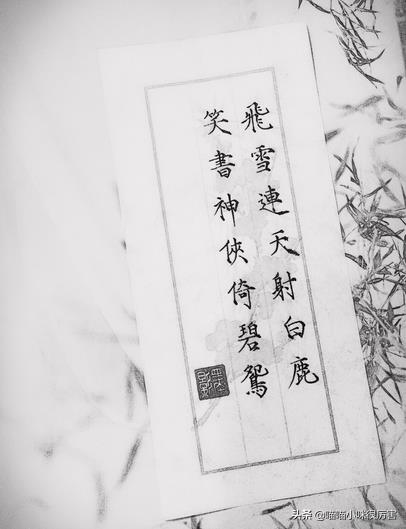 飛雪連天射白鹿
笑書神俠倚碧鴛
头条 @喵喵小咪很厉害